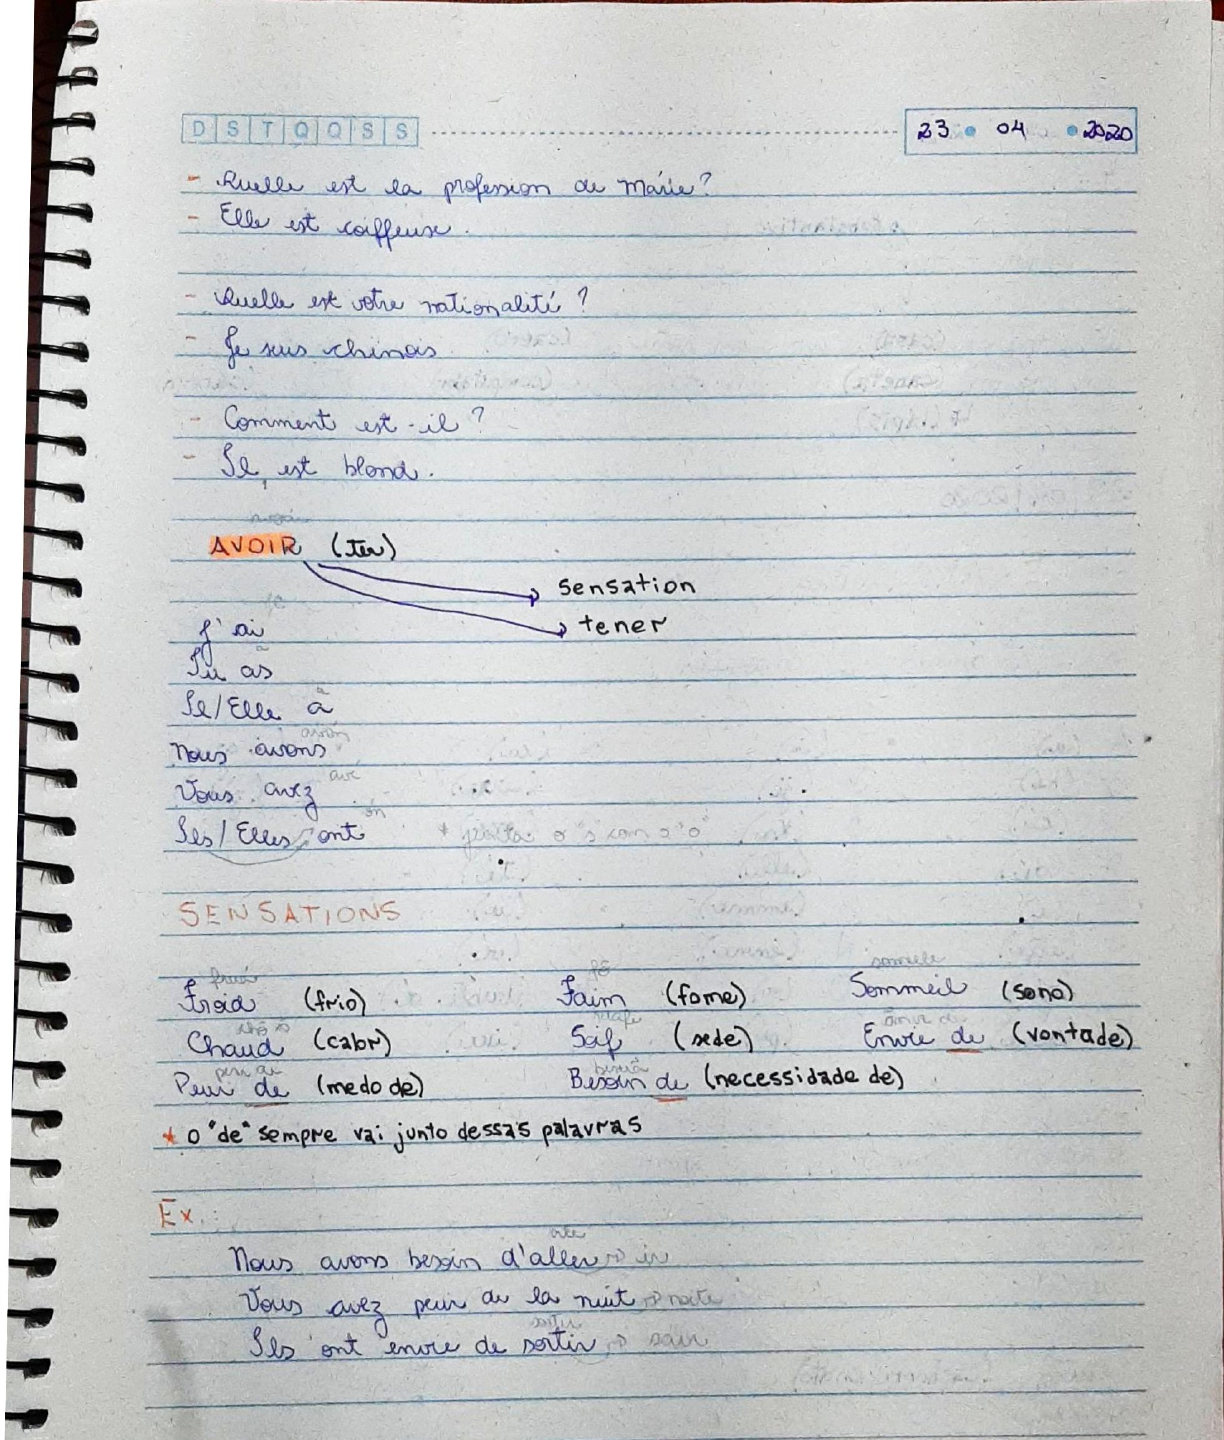 D S T Q Q S S 23 04 2020
- Quelle est la profession de Marie?
- Elle est coiffeuse.
- Quelle est votre nationalité?
- Je suis chinois
- Comment est-il?
- Il est blond.
AVOIR (ter)
sensation
tener
J'ai
Tu as
Il/Elle a
Nous avons
avon
Vous avez
avê
Ils/Elles ont
on
* junta o "s" con o "o"
SENSATIONS
Froid (frio) Faim (fome) Sommeil (sono)
Chaud (calor) Soif (sede) Envie de (vontade)
Peur de (medo de) Besoin de (necessidade de)
* o "de" sempre vai junto dessas palavras
Ex.:
Nous avons besoin d'aller → ir
Vous avez peur de la nuit → noite
Ils ont envie de sortir → sair